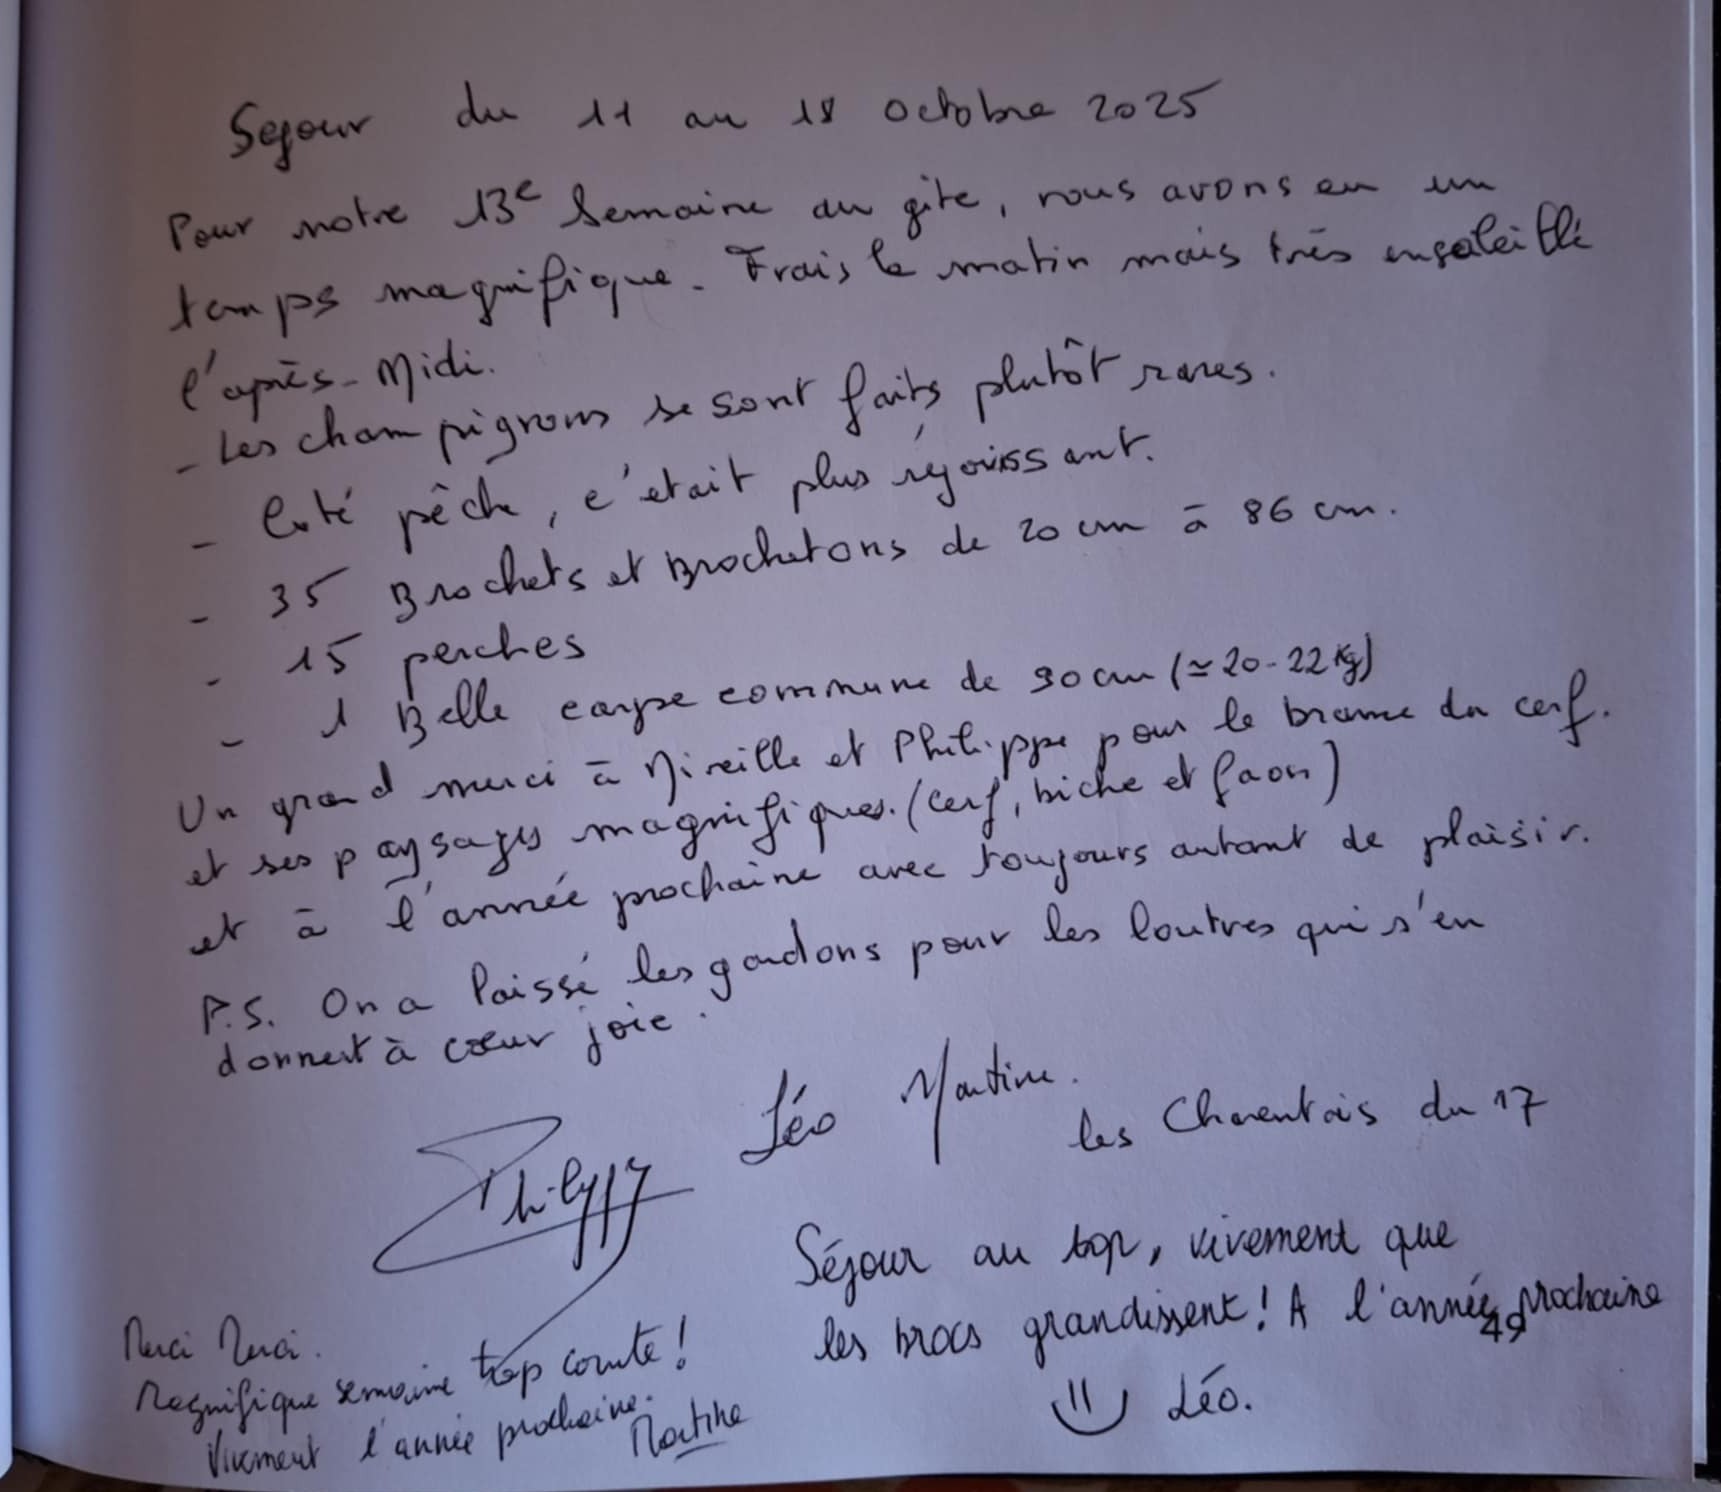 Sejour du 11 au 18 octobre 2025
Pour notre 13e semaine au gite, nous avons eu un
temps magnifique. Frais le matin mais très ensoleillé
l'après-midi.
- Les champignons se sont faits plutôt rares.
- Coté pêche, c'était plus réjouissant.
- 35 Brochets et Brochetons de 20 cm à 86 cm.
- 15 perches
- 1 Belle carpe commune de 90 cm (≃ 20-22 Kg)
Un grand merci à Mireille et Philippe pour le brame du cerf.
et ses paysages magnifiques. (cerf, biche et faon)
et à l'année prochaine avec toujours autant de plaisir.
P.S. On a laissé les gardons pour les loutres qui s'en
donnent à cœur joie.
Léo Martine.
Philippe
les Charentais du 17
Séjour au top, vivement que
les brocs grandissent! A l'année prochaine
Léo.
Merci Merci.
Magnifique semaine trop courte!
Vivement l'année prochaine.
Martine
49